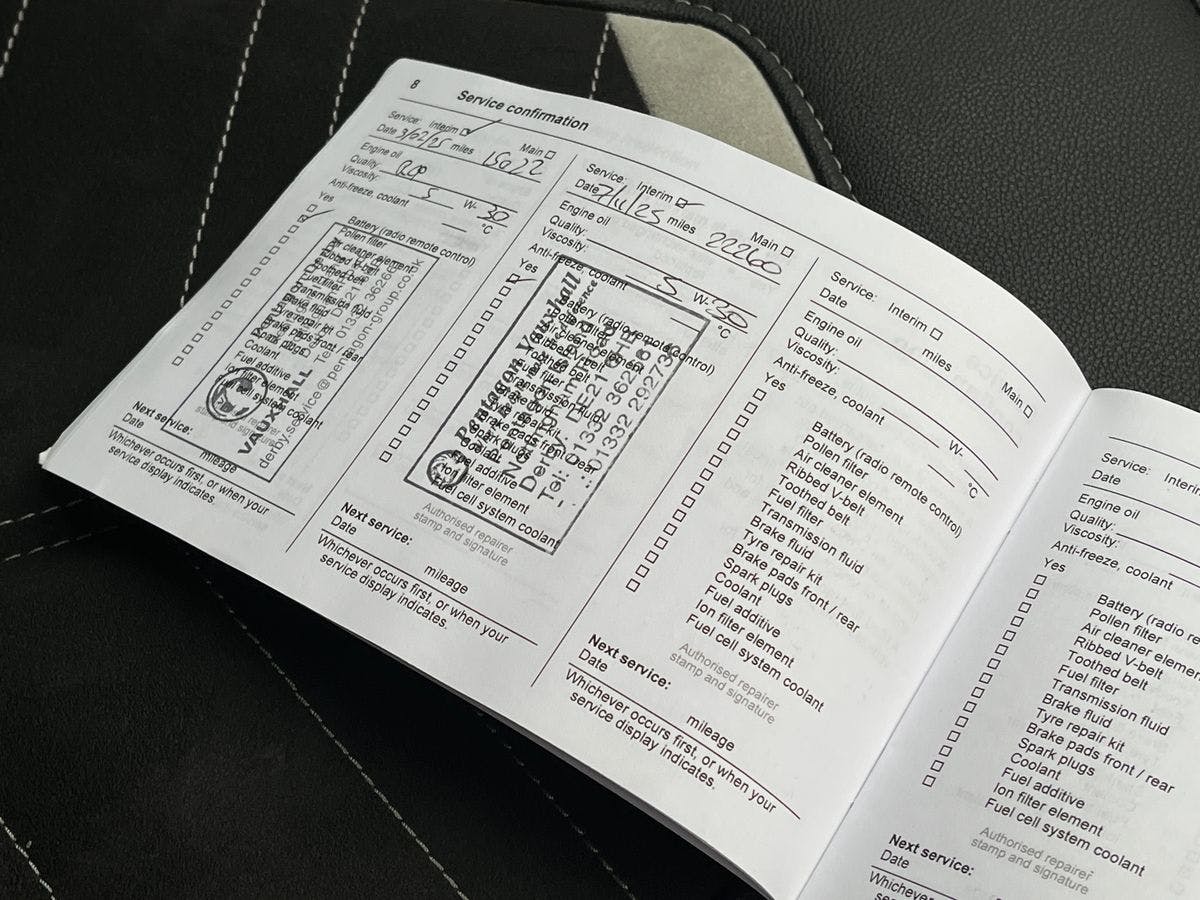 8
Service confirmation
Service: Interim ✓ Main
Date 3/02/25 miles 15022
Engine oil
Quality
Viscosity: 5 W- 30
Anti-freeze, coolant °C
Yes
Battery (radio remote control)
Pollen filter
Air cleaner element
Ribbed V-belt
Toothed belt
Fuel filter
Transmission fluid
Brake fluid
Tyre repair kit
Brake pads front / rear
Spark plugs
Coolant
Fuel additive
Ion filter element
Fuel cell system coolant
VAUXHALL
derby.service@pentagon-group.co.uk
Next service:
Date mileage
Whichever occurs first, or when your
service display indicates.
Service: Interim ✓ Main
Date 7/11/25 miles 22260
Engine oil
Quality:
Viscosity: 5 W- 30
Anti-freeze, coolant °C
Yes
Battery (radio remote control)
Pollen filter
Air cleaner element
Ribbed V-belt
Toothed belt
Fuel filter
Transmission fluid
Brake fluid
Tyre repair kit
Brake pads front / rear
Spark plugs
Coolant
Fuel additive
Ion filter element
Fuel cell system coolant
Pentagon Vauxhall
Authorised repairer
stamp and signature
Next service:
Date mileage
Whichever occurs first, or when your
service display indicates.
Service: Interim Main
Date miles
Engine oil
Quality:
Viscosity: W-
Anti-freeze, coolant °C
Yes
Battery (radio remote control)
Pollen filter
Air cleaner element
Ribbed V-belt
Toothed belt
Fuel filter
Transmission fluid
Brake fluid
Tyre repair kit
Brake pads front / rear
Spark plugs
Coolant
Fuel additive
Ion filter element
Fuel cell system coolant
Authorised repairer
stamp and signature
Next service:
Date mileage
Whichever occurs first, or when your
service display indicates.
Service: Interim
Date
Engine oil
Quality:
Viscosity:
Anti-freeze, coolant
Yes
Battery (radio re
Pollen filter
Air cleaner elemen
Ribbed V-belt
Toothed belt
Fuel filter
Transmission fluid
Brake fluid
Tyre repair kit
Brake pads front / rear
Spark plugs
Coolant
Fuel additive
Ion filter element
Fuel cell system coolant
Authorised repairer
stamp and signature
Next service:
Date
Whichever